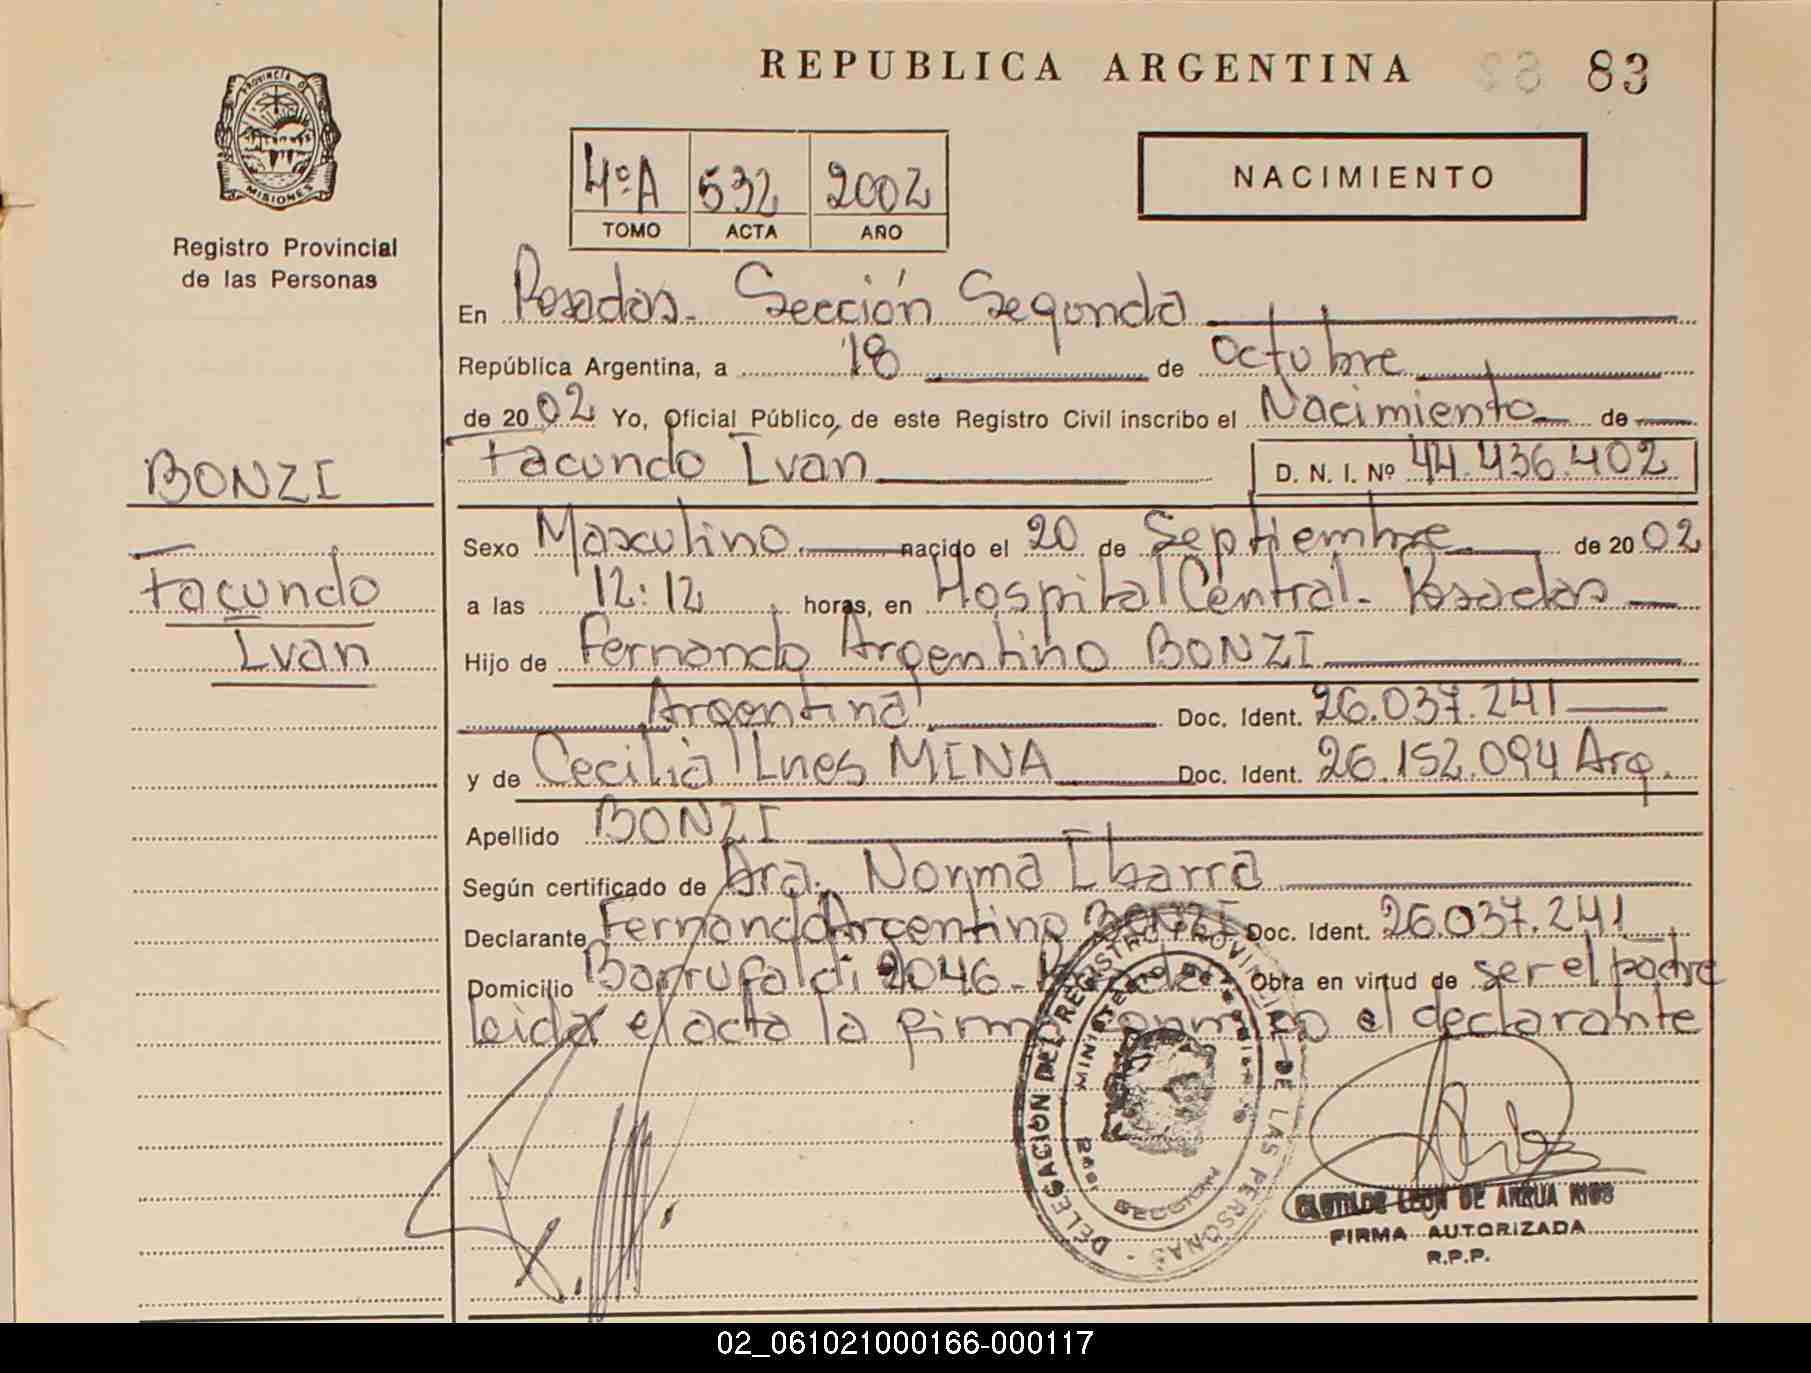 REPUBLICA ARGENTINA 83
PROVINCIA DE
MISIONES
Registro Provincial
de las Personas
4ºA 532 2002
TOMO ACTA AÑO
NACIMIENTO
En Posadas. Sección Segunda
República Argentina, a 18 de octubre
de 2002 Yo, Oficial Público, de este Registro Civil inscribo el Nacimiento de
Facundo Ivan D. N. I. Nº 44.436.402
BONZI
Facundo
Ivan
Sexo Masculino nacido el 20 de Septiembre de 2002
a las 12:12 horas, en Hospital Central. Posadas
Hijo de Fernando Argentino BONZI
Argentina Doc. Ident. 26.037.241
y de Cecilia Ines MINA Doc. Ident. 26.152.094 Arg.
Apellido BONZI
Según certificado de Dra. Norma Ibarra
Declarante Fernando Argentino BONZI Doc. Ident. 26.037.241
Domicilio Barrufaldi 2046. Posadas Obra en virtud de ser el padre
leida el acta la firma conmigo el declarante
DELEGACION DEL REGISTRO PROVINCIAL DE LAS PERSONAS
MINISTERIO DE
SECCION
CLOTILDE LEON DE ARRUA RIOS
FIRMA AUTORIZADA
R.P.P.
02_061021000166-000117